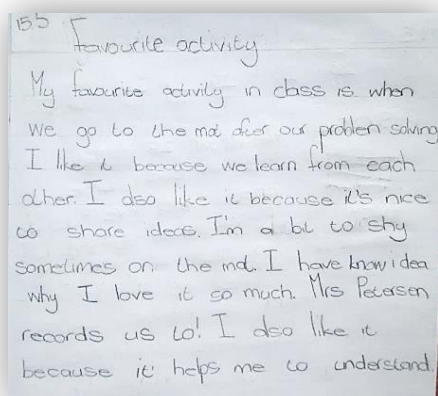 155
Favourite activity
My favourite activity in class is when
we go to the mat after our problem solving
I like it because we learn from each
other. I also like it because it's nice
to share ideas. I'm a bit to shy
sometimes on the mat. I have know idea
why I love it so much. Mrs Petersen
records us to! I also like it
because it helps me to understand.